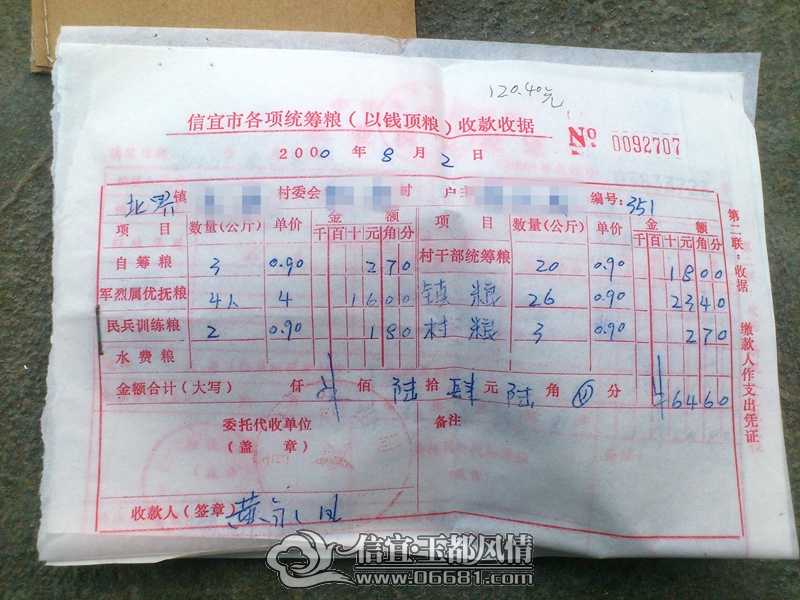 120.40元
信宜市各项统筹粮(以钱顶粮)收款收据
№ 0092707
2000 年 8 月 2 日
北界镇 村委会 村 户主 编号:351
项目 数量(公斤) 单价 金额 千百十元角分 项目 数量(公斤) 单价 金额 千百十元角分
自筹粮 3 0.90 270 村干部统筹粮 20 0.90 1800
军烈属优抚粮 4人 4 1600 镇粮 26 0.90 2340
民兵训练粮 2 0.90 180 村粮 3 0.90 270
水费粮
金额合计(大写) 仟 佰 陆拾肆元陆角 分 ¥6460
委托代收单位 备注
(盖章)
收款人(签章)
第二联:收据 缴款人作支出凭证
信宜·玉都风情
www.06681.com